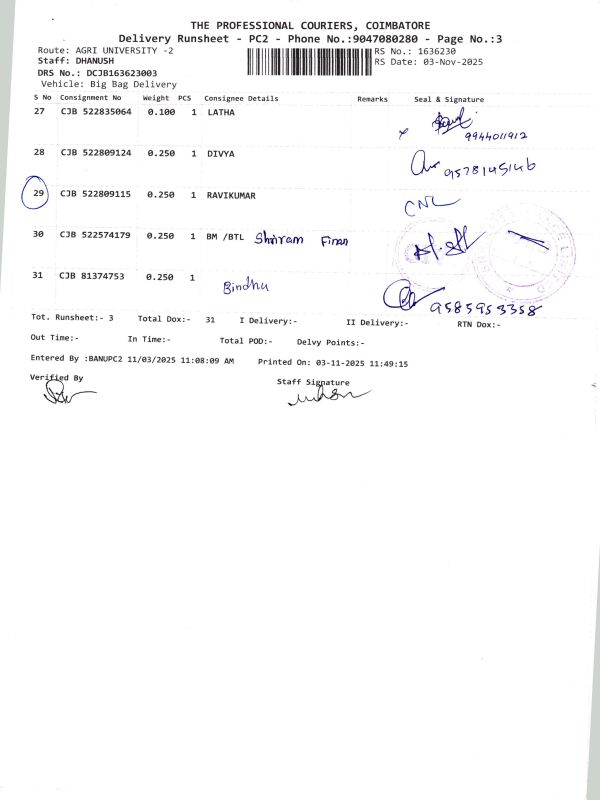 THE PROFESSIONAL COURIERS, COIMBATORE
Delivery Runsheet - PC2 - Phone No.:9047080280 - Page No.:3
Route: AGRI UNIVERSITY -2 RS No.: 1636230
Staff: DHANUSH RS Date: 03-Nov-2025
DRS No.: DCJB163623003
Vehicle: Big Bag Delivery
S No Consignment No Weight PCS Consignee Details Remarks Seal & Signature
27 CJB 522835064 0.100 1 LATHA
9944011912
28 CJB 522809124 0.250 1 DIVYA
9578145146
29 CJB 522809115 0.250 1 RAVIKUMAR CNL
30 CJB 522574179 0.250 1 BM /BTL Shriram Finan
31 CJB 81374753 0.250 1 Bindhu
9585953358
Tot. Runsheet:- 3 Total Dox:- 31 I Delivery:- II Delivery:- RTN Dox:-
Out Time:- In Time:- Total POD:- Delvy Points:-
Entered By :BANUPC2 11/03/2025 11:08:09 AM Printed On: 03-11-2025 11:49:15
Verified By Staff Signature